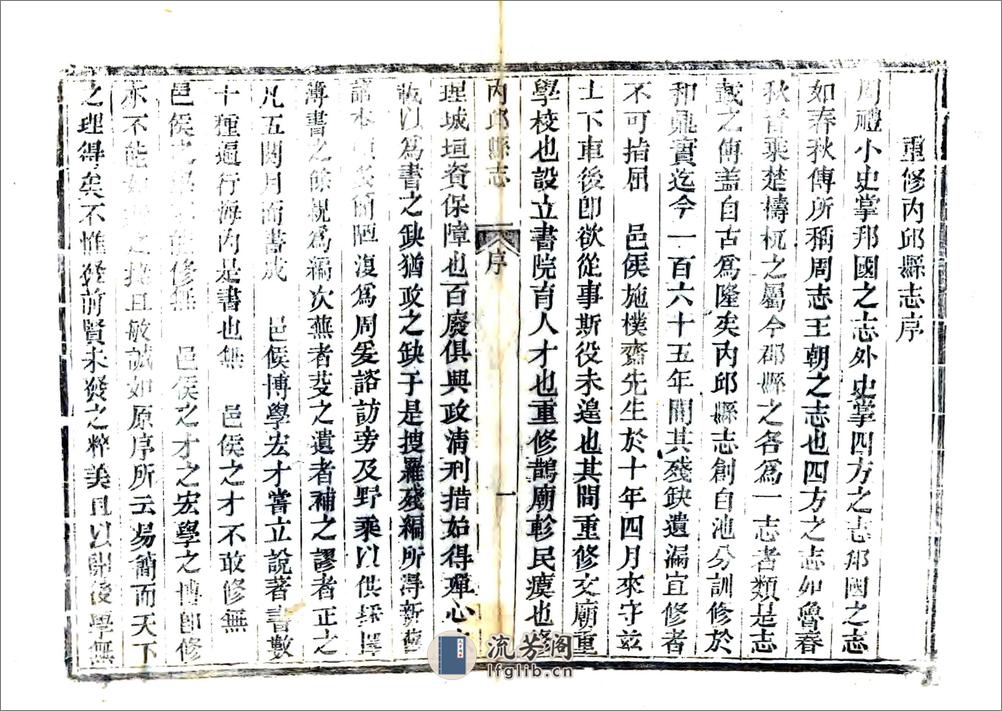 重修內邱縣志序
周禮小史掌邦國之志外史掌四方之志邦國之志
如春秋傳所稱周志王朝之志也四方之志如魯春
秋晉乘楚檮杌之屬今郡縣之各為一志者類是志
載之傳蓋自古為隆矣內邱縣志創自池分訓修於
和鼎實迄今一百六十五年間其殘缺遺漏宜修者
不可指屈 邑侯施樸齋先生於十年四月來守茲
土下車後即欲從事斯役未遑也其間重修文廟重
學校也設立書院育人才也重修鵲廟軫民瘼也
內邱縣志 序 一
理城垣資保障也百廢俱興政清刑措始得殫心
以為書之缺猶政之缺于是搜羅殘編所得新舊
陋復為周爰諮訪旁及野乘以供採擇
簿書之餘親為編次蕪者芟之遺者補之謬者正之
凡五閱月而書成 邑侯博學宏才嘗立說著書數
十種遍行海內是書也無 邑侯之才不敢修無
邑侯之 修無 邑侯之才之宏學之博即修
亦不能 之 且敏誠如原序所云易簡而天下
之理得矣不惟發前賢未發之粹美且以開後學無
流芳閣
lfglib.cn